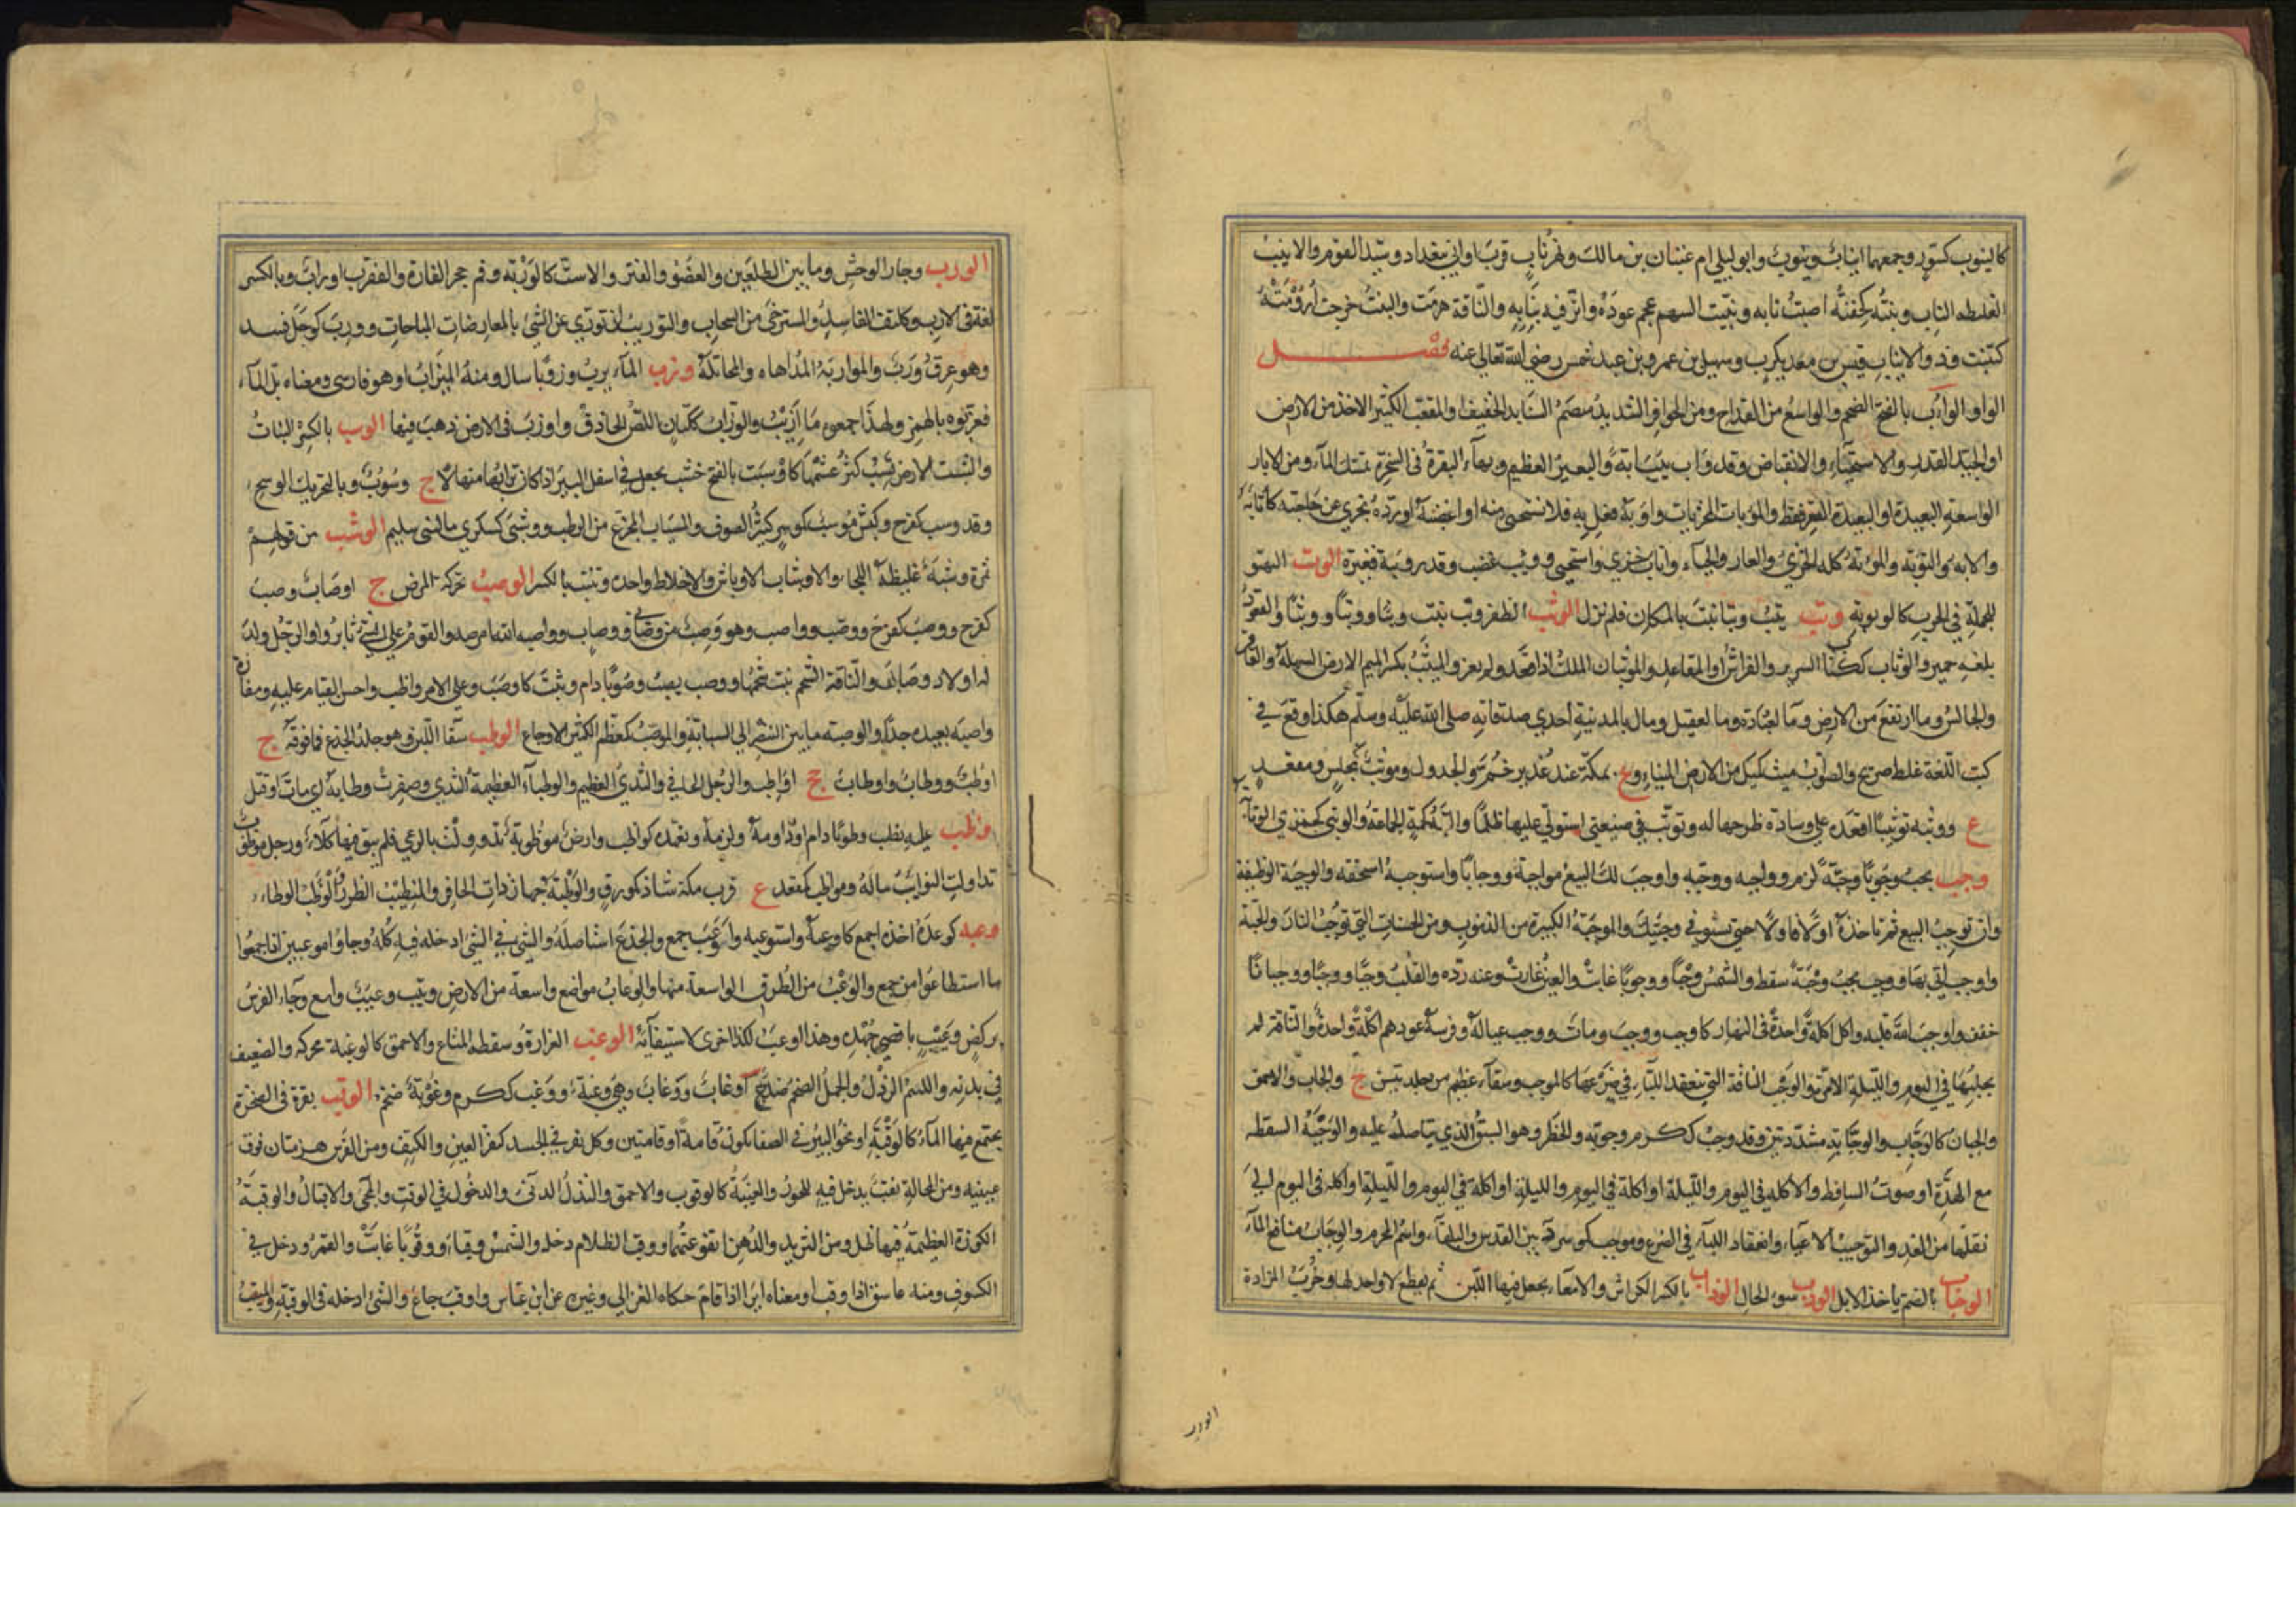 كالينوب كتنور وجمعها انياب ونيوب وابو ليلى ام عتبان بن مالك ونهر ناب قرب اوانى ببغداد وسيد القوم والانيب
الغليظه الناب ونبته كخفته اصبت نابه ونيبت السهم عجم عوده واثر فيه بنابه والناقة هرمت والنبت خرجت ارومته
كتنيبت وذو الانياب قيس بن معديكرب وسهيل بن عمرو بن عبد شمس رضي الله تعالى عنه فصل
الواو الوأب بالفتح الضخم والواسع من القداح ومن الحوافر الشديد منضم السنابك الخفيف او المقعب الكثير الاخذ من الارض
او الجيد القدر والاستحياء والانقباض وقد وأب يئب ابة والبعير العظيم وبهاء النقرة في الصخرة تمسك الماء ومن الابار
الواسعة البعيدة او البعيدة القعر فقط والموئبات المخزيات واوأبه فعل به فعلا يستحيى منه او اغضبه او رده بخزي عن حاجته كاتأبه
والابة والتؤبة والموئبة كله الخزي والعار والحياء واتأب خزي واستحيى ووئب غضب وقدر وئيبة قعيرة الوب التهيؤ
للحملة في الحرب كالوبوبة وتب يتب وتبا ثبت بالمكان فلم يزل الوثب الظفر وثب يثب وثبا ووثبانا ووثوبا ووثابا ووثيبا والقعود
بلغه حمير والوثاب ككتاب السرير والفراش او المقاعد والموثبان الملك اذا قعد ولم يغز والميثب بكسر الميم الارض السهلة والقافز
والجالس وما ارتفع من الارض وماء لعبادة وما لعقيل ومال بالمدينة احدى صدقاته صلى الله عليه وسلم هكذا وقع في
كتب اللغة غلط صريح والصواب ميثب كميل من الارض الميثاء وع بمكة عند غدير خم والجدول وموثب كمجلس ومقعد
ع ووثبه توثيبا اقعده على وسادة وطرحها له وتوثب في ضيعتي استولى عليها ظلما والثبة كحمة الجماعة والوثبى كجمزى الوثابة
وجب يجب وجوبا وجبة لزم واوجبه ووجبه واوجب لك البيع مواجبة ووجابا واستوجبه استحقه والوجيبة الوظيفة
وان توجب البيع ثم تاخذه اولا فاولا حتى تستوفي وجيبتك والموجبة الكبيرة من الذنوب ومن الحسنات التي توجب النار والجنة
واوجب اتى بها ووجب يجب وجبة سقط والشمس وجبا ووجوبا غابت والعين غارت وعنه رده والقلب وجبا ووجيبا ووجبانا
خفق واوجب الله قلبه واكل اكلة واحدة في النهار كاوجب ووجب ومات ووجب عياله وفرسه عودهم اكلة واحدة والناقة لم
يحلبها في اليوم والليلة الا مرة والوجب الناقة التي ينعقد اللبأ في ضرعها كالموجب وسقاء عظيم من جلد تيس ج وجاب والاحمق
والجبان كالوجاب والوجابة مشددتين وقد وجب ككرم وجوبة والخطر وهو السبق الذي يناضل عليه والوجبة السقطة
مع الهدة او صوت الساقط والاكلة في اليوم والليلة او اكلة في اليوم والليلة او اكلة في اليوم والليلة او اكله في اليوم الى
نقلها من الغد والتوجيب الاعياء وانعقاد اللبأ في الضرع وموجب كموسر بين القدس والبلقاء واسم المحرم والوجاب مناقع الماء
الوحاب بالضم ياخذ الابل الودب سوء الحال الوذاب بالكسر الكراش والامعاء يجعل فيها اللبن ثم يقطع لا واحد لها وخرب المزادة
الورب
الورب وجار الوحش وما بين الضلعين والعضو والفتر والاست كالوربة وفم حجر الفارة والعقرب اوراب وبالكسر
لغة في الارب وككتف الفاسد والمسترخى من السحاب والتوريب ان تورى عن الشئ بالمعارضات المباحات وورب كوجل فسد
وهو عرق ورب والمواربة المداهاة والمخاتلة وزب الماء يزب وزوبا سال ومنه الميزاب او هو فارسى ومعناه بل الماء
فعربوه بالهمز ولهذا جمعوه مآزيب والوزاب ككتان اللص الحاذق واوزب في الارض ذهب فيها الوسب بالكسر النبات
وسبت الارض تسب كثر عشبها كاوسبت بالفتح خشب يجعل في اسفل البير اذا كان ترابها منهالا ج وسوب وبالتحريك الوسخ
وقد وسب كفرح وكبش موسب كموسر كثير الصوف والميساب المجزع من الرطب ووشبى كسكرى ماء لبنى سليم الوشب من قولهم
تمرة وشبة غليظة اللحاء والاوشاب الاوباش والاخلاط واحده وشب بالكسر الوصب محركة المرض ج اوصاب وصب
كفرح ووصب كفرح ووصب وواصب وهو وصب من وصابى ووصاب وواصبه انتهام مرضه والقوم على الشئ ثابروا والرجل ولد
له اولاد وصابى والناقة الشحم نبت شحمها ووصب يصب وصوبا دام وثبت كاوصب وعلى الامر واظب واحسن القيام عليه ومفازة
واصبة بعيدة جدا والوصبة ما بين البنصر الى السبابة والموصب كمعظم الكثير الاوجاع الوطب سقاء اللبن وهو جلد الجذع فما فوقه ج
اوطب ووطاب واوطاب جج اواطب والرجل الجافي والثدي العظيم والوطباء العظيمة الثدي وصفرت وطابه اي مات او قتل
وظب عليه يظب وظوبا دام او داومه ولزمه وتعهده كواظب وارض موظوبة تدوولت بالرعي فلم يبق فيها كلاء ورجل موظوب
تداولت النوايب ماله وموظب كمقعد ع قرب مكة شاذ كمورق والوظبة جهاز ذات الحافر والميظب الظرر والوظب الوطاء
وعبه كوعده اخذه اجمع كاوعبه واستوعبه واوعب جمع والجذع استاصله والشئ في الشئ ادخله فيه كله وجاؤا موعبين اذا جمعوا
ما استطاعوا من جمع والوعب من الطرق الواسعة منها والوعاب مواضع واسعة من الارض وبيت وعيب واسع وجاء الفرس
بركض وعيب باقصى جهده وهذا اوعب لكذا احرى لاستيفائه الوغب الغرارة وسقط المتاع والاحمق كالوغبة محركه والضعيف
في بدنه واللئيم الرذل والجمل الضخم ضد ج اوغاب ووغاب وهي وغبة ووغب ككرم وغوبة ضخم الوقب نقرة في الصخرة
يجتمع فيها الماء كالوقبة او نحو البير في الصفا تكون قامة او قامتين وكل نقر في الجسد كنقر العين والكتف ومن الفرس هزمتان فوق
عينيه ومن المحالة نقب يدخل فيه المحور والغيبة كالوقوب والاحمق والنذل الدنى والدخول في الوقب والمجئ والاقبال والوقبة
الكوة العظيمة فيها ظل ومن الثريد والدهن انقوعتها ووقب الظلام دخل والشمس وقبا ووقوبا غابت والقمر دخل في
الكسوف ومنه غاسق اذا وقب او معناه اير اذا قام حكاه الغزالي وغيره عن ابن عباس واوقب جاع والشئ ادخله في الوقبة والميقب